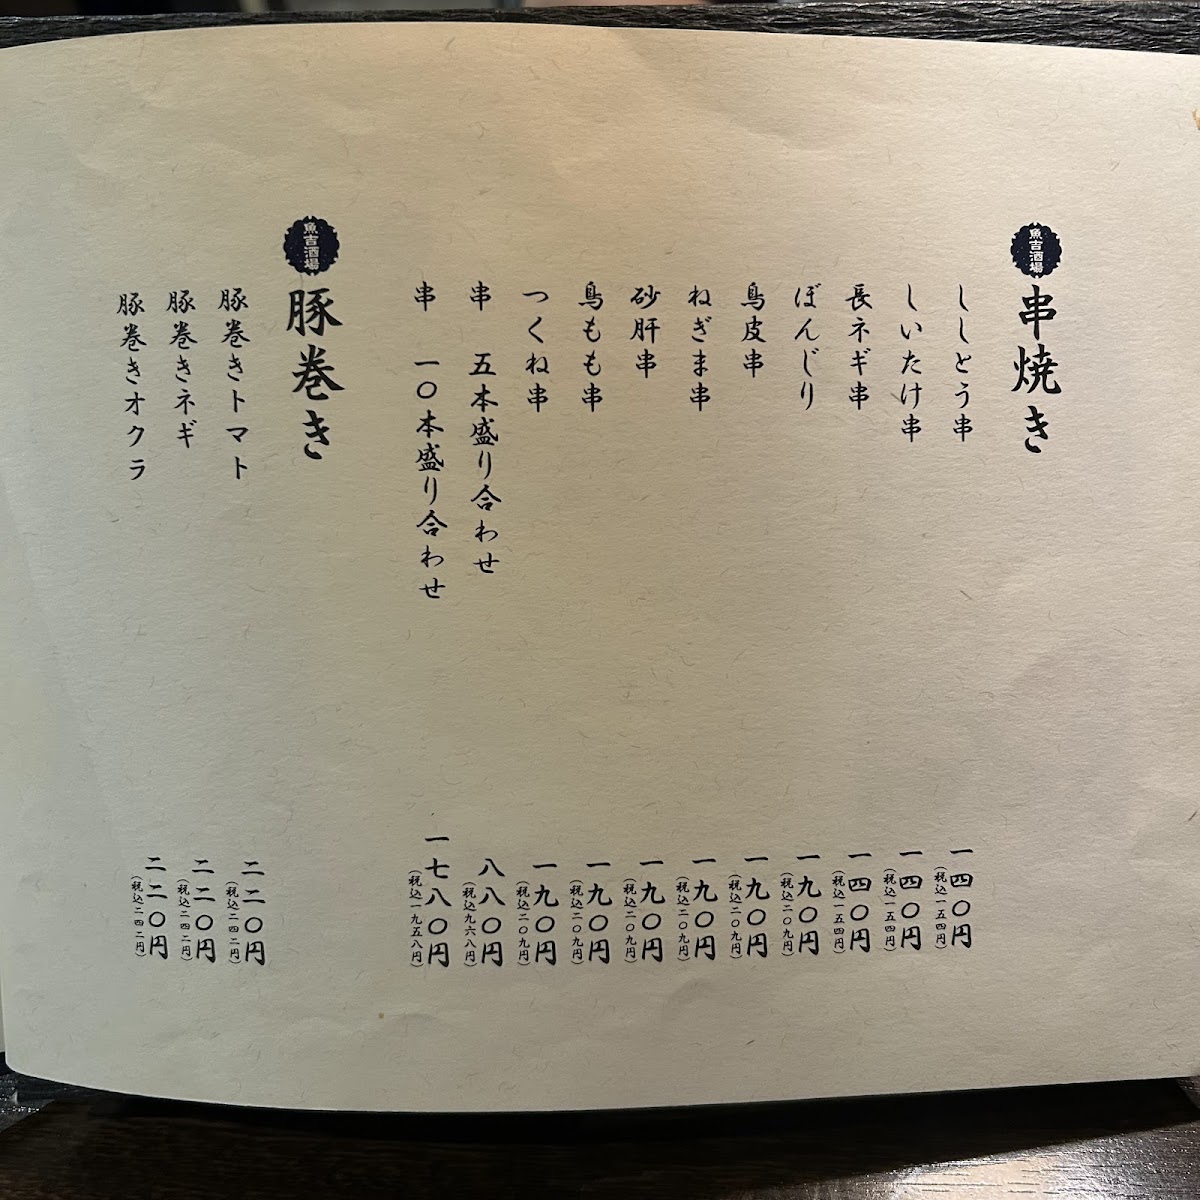 魚吉酒場
串焼き
ししとう串 一四〇円
(税込一五四円)
しいたけ串 一四〇円
(税込一五四円)
長ネギ串 一四〇円
(税込一五四円)
ぼんじり 一九〇円
(税込二〇九円)
鳥皮串 一九〇円
(税込二〇九円)
ねぎま串 一九〇円
(税込二〇九円)
砂肝串 一九〇円
(税込二〇九円)
鳥もも串 一九〇円
(税込二〇九円)
つくね串 一九〇円
(税込二〇九円)
串 五本盛り合わせ 八八〇円
(税込九六八円)
串 一〇本盛り合わせ 一七八〇円
(税込一九五八円)
魚吉酒場
豚巻き
豚巻きトマト 二二〇円
(税込二四二円)
豚巻きネギ 二二〇円
(税込二四二円)
豚巻きオクラ 二二〇円
(税込二四二円)